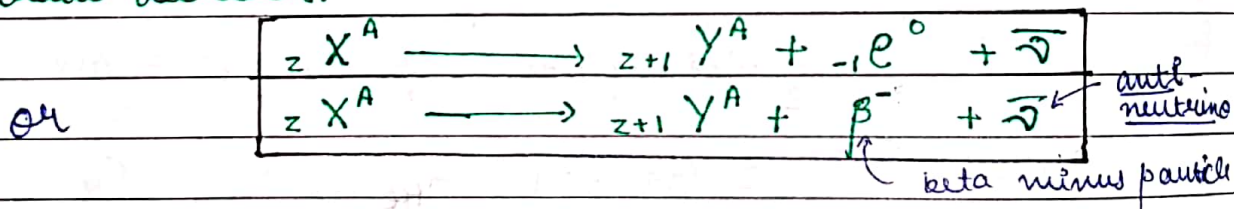 ZXᴬ ⟶ Z+1Yᴬ + -1e⁰ + ν̄
or ZXᴬ ⟶ Z+1Yᴬ + β⁻ + ν̄ anti-
neutrino
beta minus particle